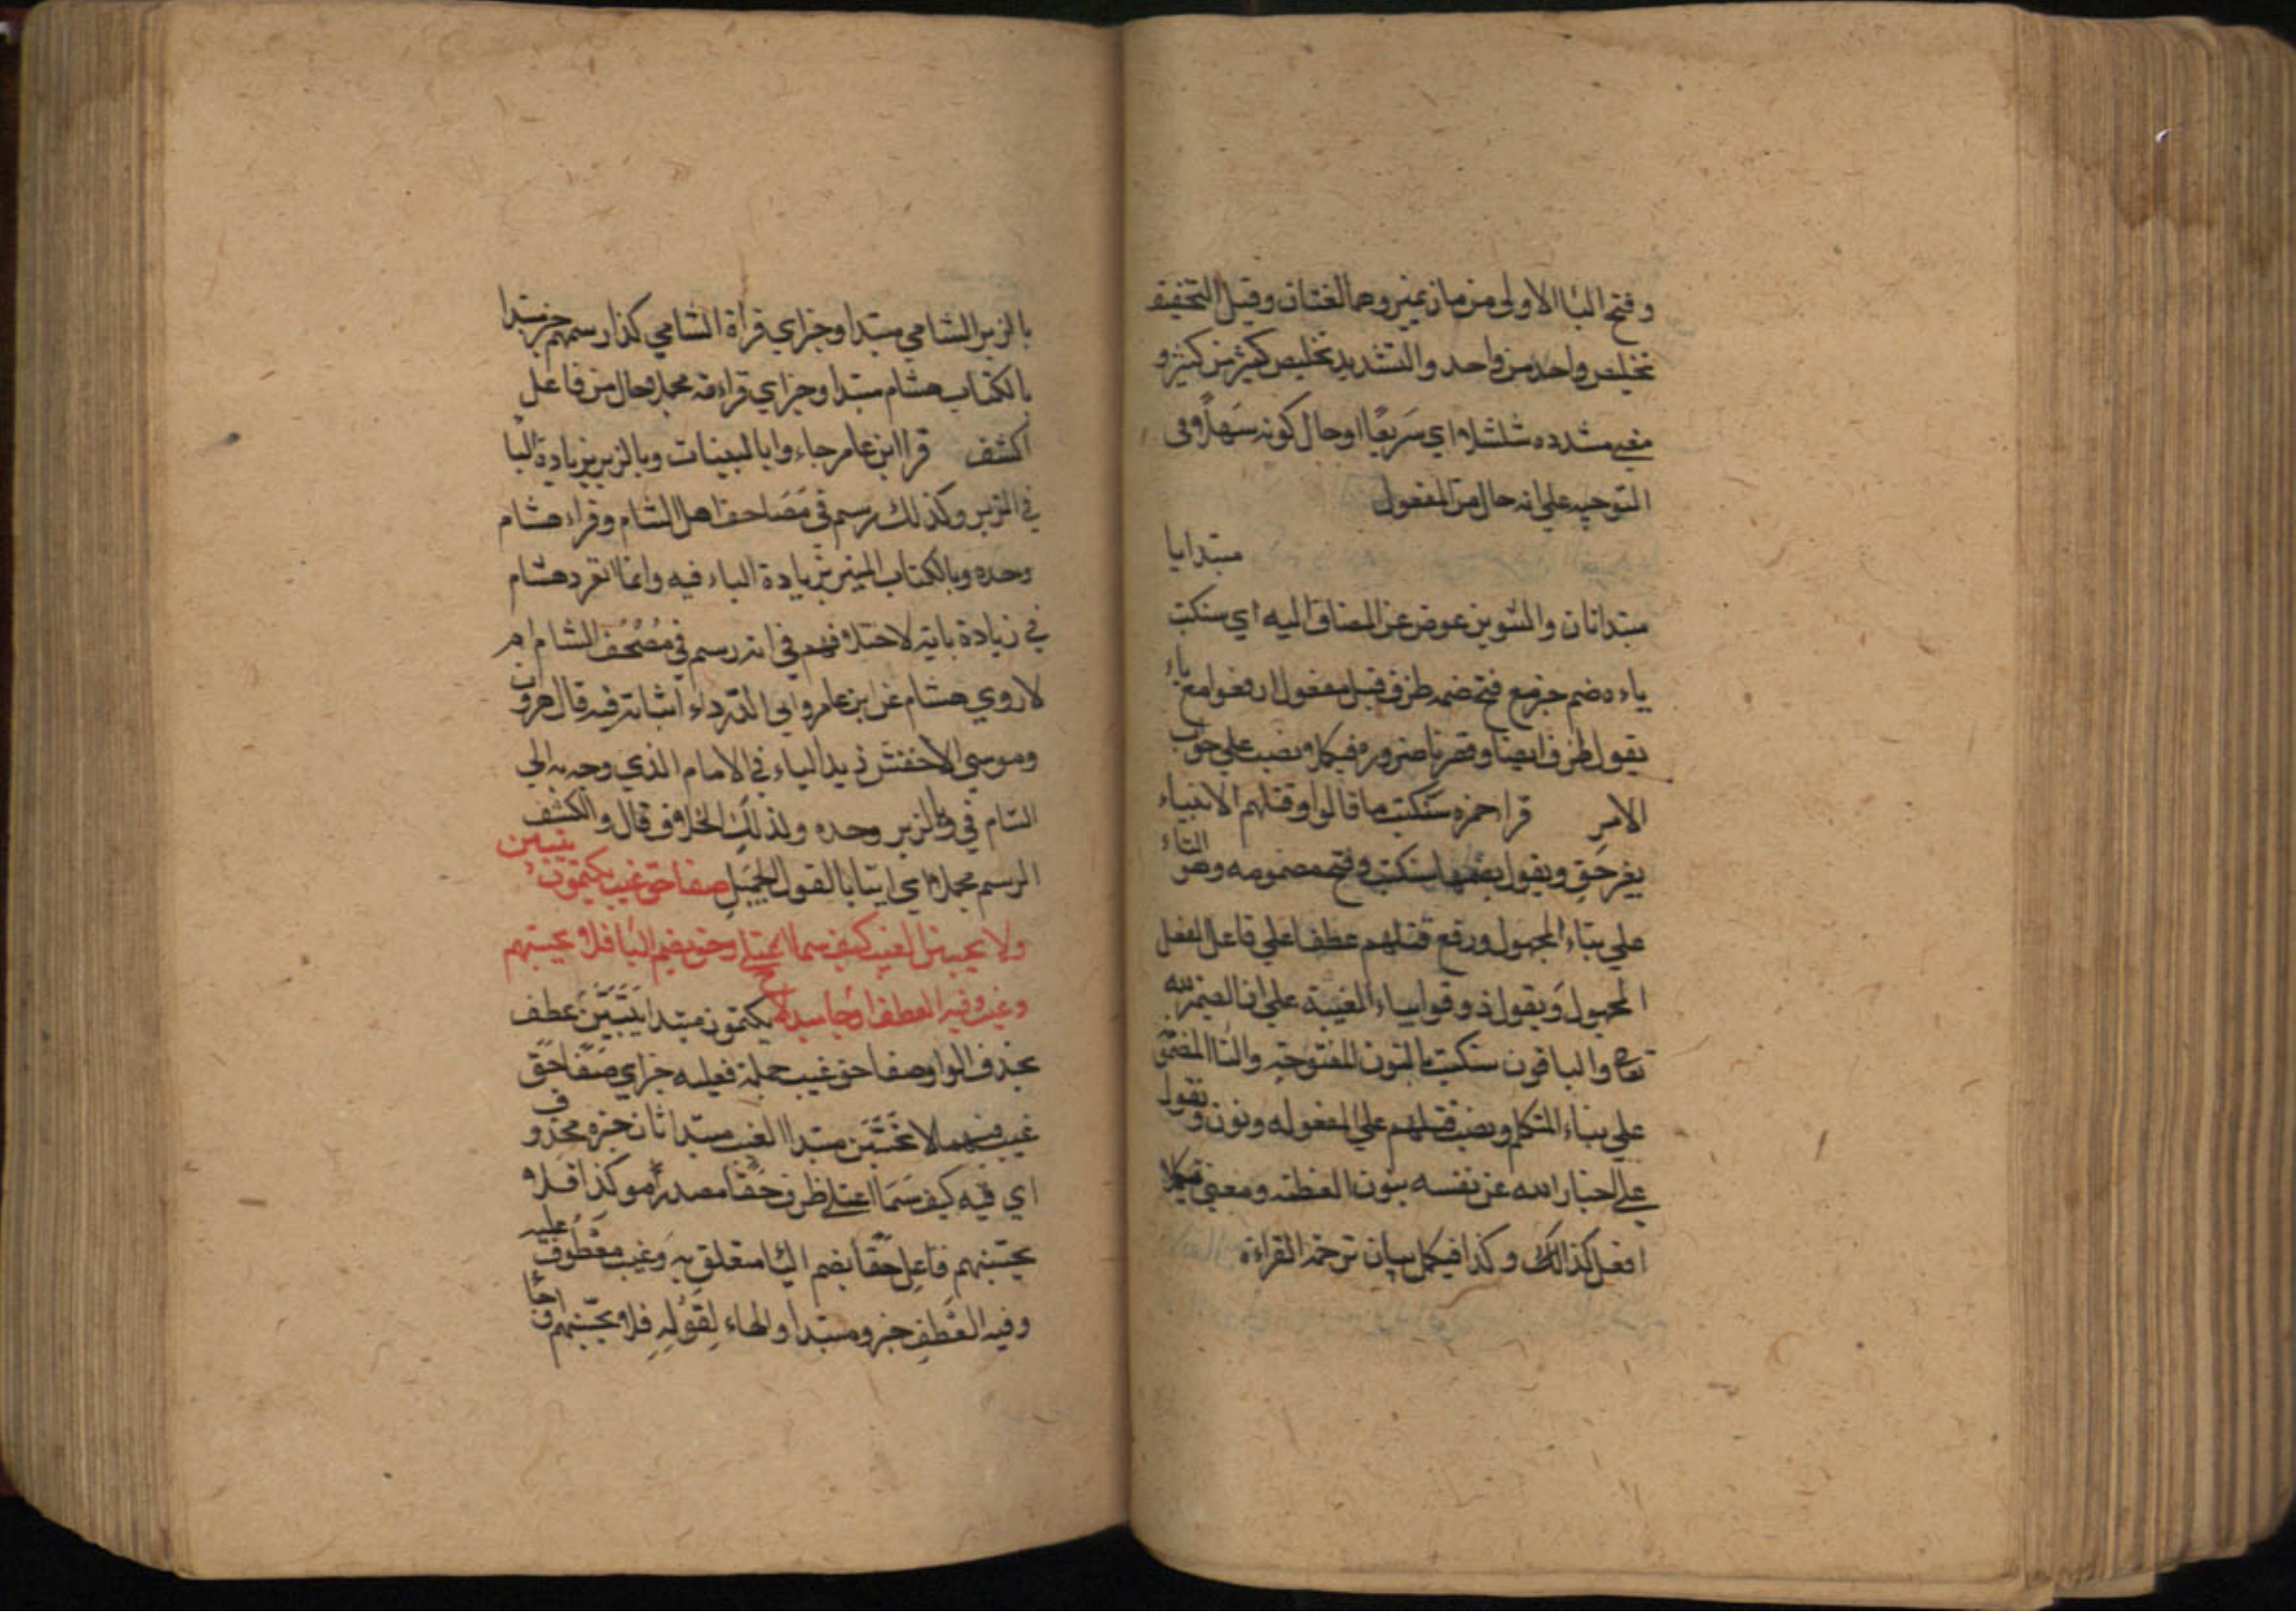 وفتح اليا الاولى من ماز يميز وهما لغتان وقيل التخفيف
تخليص واحد من واحد والتشديد تخليص كثير من كثير و
مشدده شلشلا اي سريعا اوحال كونه سهلا وفى
التوجيه علي انه حال من المفعول
مبتدا يا
مبتدا ثان والتنوين عوض عن المضاف اليه اي سنكتب
ياءه ضم خبر مع فتح ضمه ظرف قبل مفعول ارفعوا مع ياء
يقول ظرف ايضا وقصر يا ضرورة فيكمل ونصب علي جواب
الامر قرا حمزه سنكتب ما قالوا وقتلهم الانبياء
بغير حق ويقول سنكتب وفتح مضمومه وهو التاء
علي بناء المجهول ورفع قتلهم عطفا علي فاعل الفعل
المجهول ويقول ذوقوا بياء الغيبة علي ان الضمير لله
تعالى والباقون سنكتب بالنون المفتوحة والتا المضموم
علي بناء المتكلم ونصب قتلهم علي المفعوله ونون ونقول
علي اخبار الله عن نفسه بنون العظمة ومعني فيكملا
افعل كذلك وكذا فيكمل بيان ترجمة القراءة
بالزبر الشامي مبتدا وخبر اي قراة الشامي كذا رسمهم خبر مبتدا
بالكتاب هشام مبتدا وخبر اي قراءته مجملا حال من فاعل
اكشف قرا ابن عامر جاءوا بالبينات وبالزبر بزيادة البا
في الزبر وكذلك رسم في مصاحف اهل الشام وقراء هشام
وحده وبالكتاب المنير بزيادة الباء فيه وانما انفرد هشام
في زيادة بائه لاختلافهم في انه رسم في مصحف الشام ام
لا روي هشام عن ابن عامر وابي الدرداء اثباته فيه قال هرون
وموسي الاخفش زيد الباء في الامام الذي وجه به الي
الشام في وبالزبر وحده ولذلك الخلاف قال واكشف
الرسم مجملا اي ايتا بالقول الجميل صفا حق غيب يكتمون يبينن
ولا يحسبن الغيب كيف سما اعتلى وحق بضم البا فلا يحسبنهم
وغيب وفيه العطف او جا مبدلا يكتمون مبتدا يبينن عطف
بحذف الواو صفا حق غيب جملة فعليه خبر اي صفا حق
غيب فيهما لا تحسبن مبتدا الغيب مبتدا ثان خبره محذوف
اي فيه كيف سما اعتلى ظرف حقا مصدر موكد فلا
يحسبنهم فاعل حقا بضم البا متعلق به وغيب معطوف عليه
وفيه العطف خبر ومبتدا والهاء لقوله فلا يحسبنهم اوجا